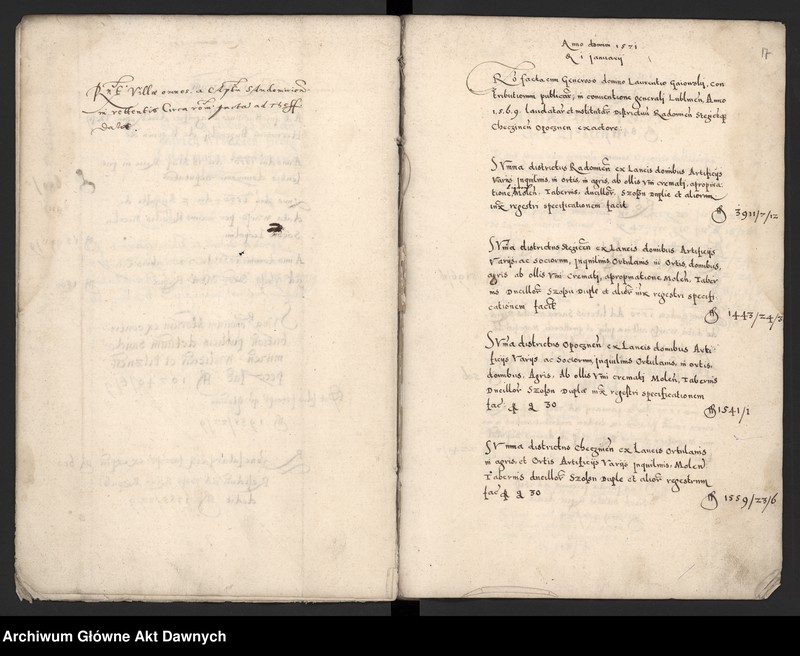 Villæ omnes. a
in
Anno domini 1571
1 januarij
17
Ro facta cum Generoso domno Laurentio Gaiowskj, con
tributionum publicar, in conventione generalj Lublinen, Anno
1.5.6.9. laudatar et institutar Districtus Radomien Stezicen
Checzinen Opocznen exactore
Summa districtus Radomien ex Laneis domibus Artificijs
Varijs inquilinis, in ortis, in agris, ab ollis Vini crematj, apropina
tione Molen. Tabernis, ducillor Szosu Duple et aliorum
iux regestri specificationem facit
3911/7/12
Summa districtus Stezicen ex Laneis domibus Artificijs
Varijs, ac Sociorum, Inquilinis Ortulanis in Ortis, domibus,
agris ab ollis Vini Crematj, apropinatione Molen. Taber
nis Ducillor Szosu Duple et alior iux regestri specifi
cationem facit
1443/24/3
Summa districtus Opocznen ex Laneis domibus Arti
ficijs Varijs ac Sociorum, inquilinis Ortulanis, in ortis,
domibus, Agris, Ab ollis Vini crematj Molen, Tabernis
Ducillor Szosu Duplæ iux regestri specificationem
fac 30
1541/1
Summa districtus Checzinen ex Laneis Ortulanis
in agris, et Ortis Artificijs Varijs Inquilinis, Molen
Tabernis ducillor Szosu Duple et alior regestrum
fac 30
1559/23/6
Archiwum Główne Akt Dawnych